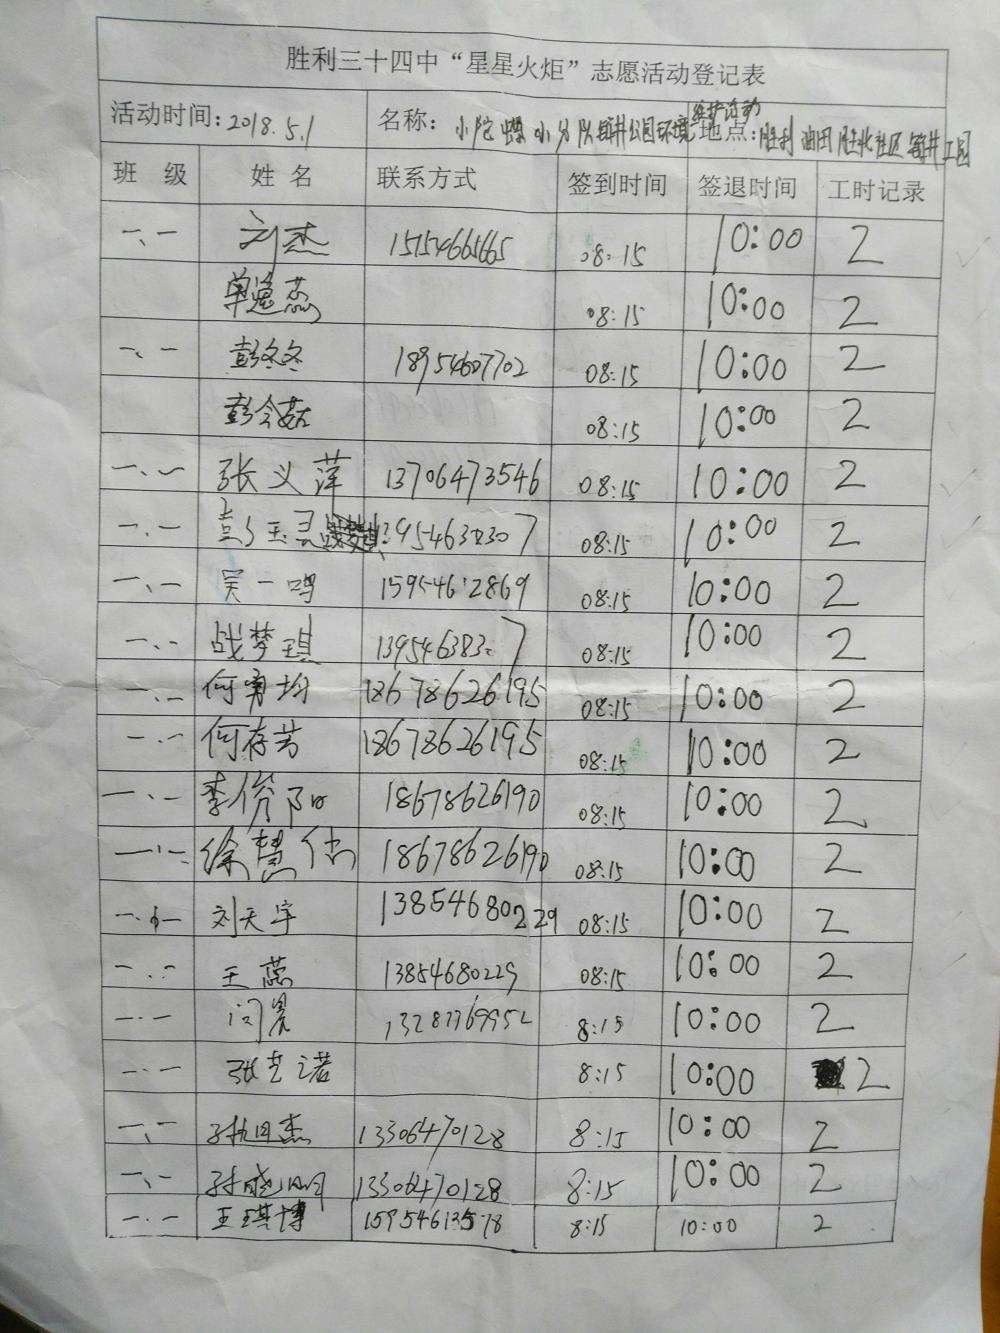 胜利三十四中“星星火炬”志愿活动登记表
活动时间:2018.5.1 名称: 小陀螺小分队 公园环境维护活动 地点:胜利油田胜北社区
班 级 姓 名 联系方式 签到时间 签退时间 工时记录
一、一 刘杰 15154665665 08:15 10:00 2
单逸蕊 08:15 10:00 2
一、一 彭冬冬 18954607702 08:15 10:00 2
彭令茹 08:15 10:00 2
一、一 张义萍 13706473546 08:15 10:00 2
一、一 彭玉灵 08:15 10:00 2
一、一 吴一鸣 15954612869 08:15 10:00 2
一、一 战梦琪 08:15 10:00 2
一、一 何勇均 18678626195 08:15 10:00 2
一、一 何存芳 18678626195 08:15 10:00 2
一、一 李俊阳 18678626190 08:15 10:00 2
一、一 徐慧 18678626190 08:15 10:00 2
一、一 刘天宇 13854680229 08:15 10:00 2
一、一 王蕊 13854680229 08:15 10:00 2
一、一 闫 8:15 10:00 2
一、一 张艺诺 8:15 10:00 2
一、一 杰 13306470128 8:15 10:00 2
一、一 孙晓明 13306470128 8:15 10:00 2
一、一 王琪博 15954613578 8:15 10:00 2